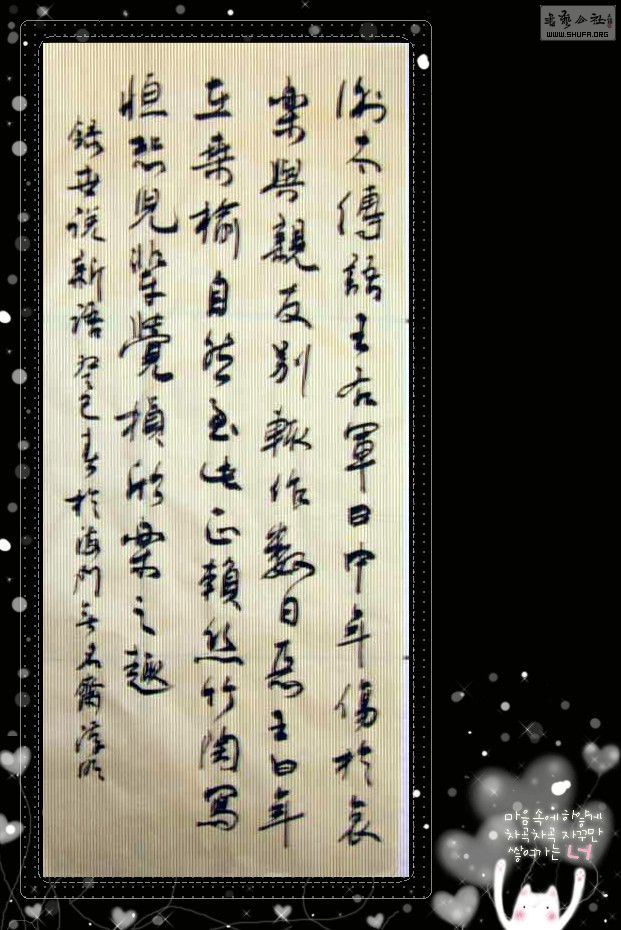 谢太傅語王右軍曰中年傷於哀
樂與親友别輒作数日惡王曰年
在桑榆自然至此正賴丝竹陶寫
恒恐兒輩覺損欣樂之趣
錄世说新语癸巳春於海门無名齋
WWW.SHUFA.ORG
마음속에 하얗게
차곡차곡 자꾸만
쌓여가는 너